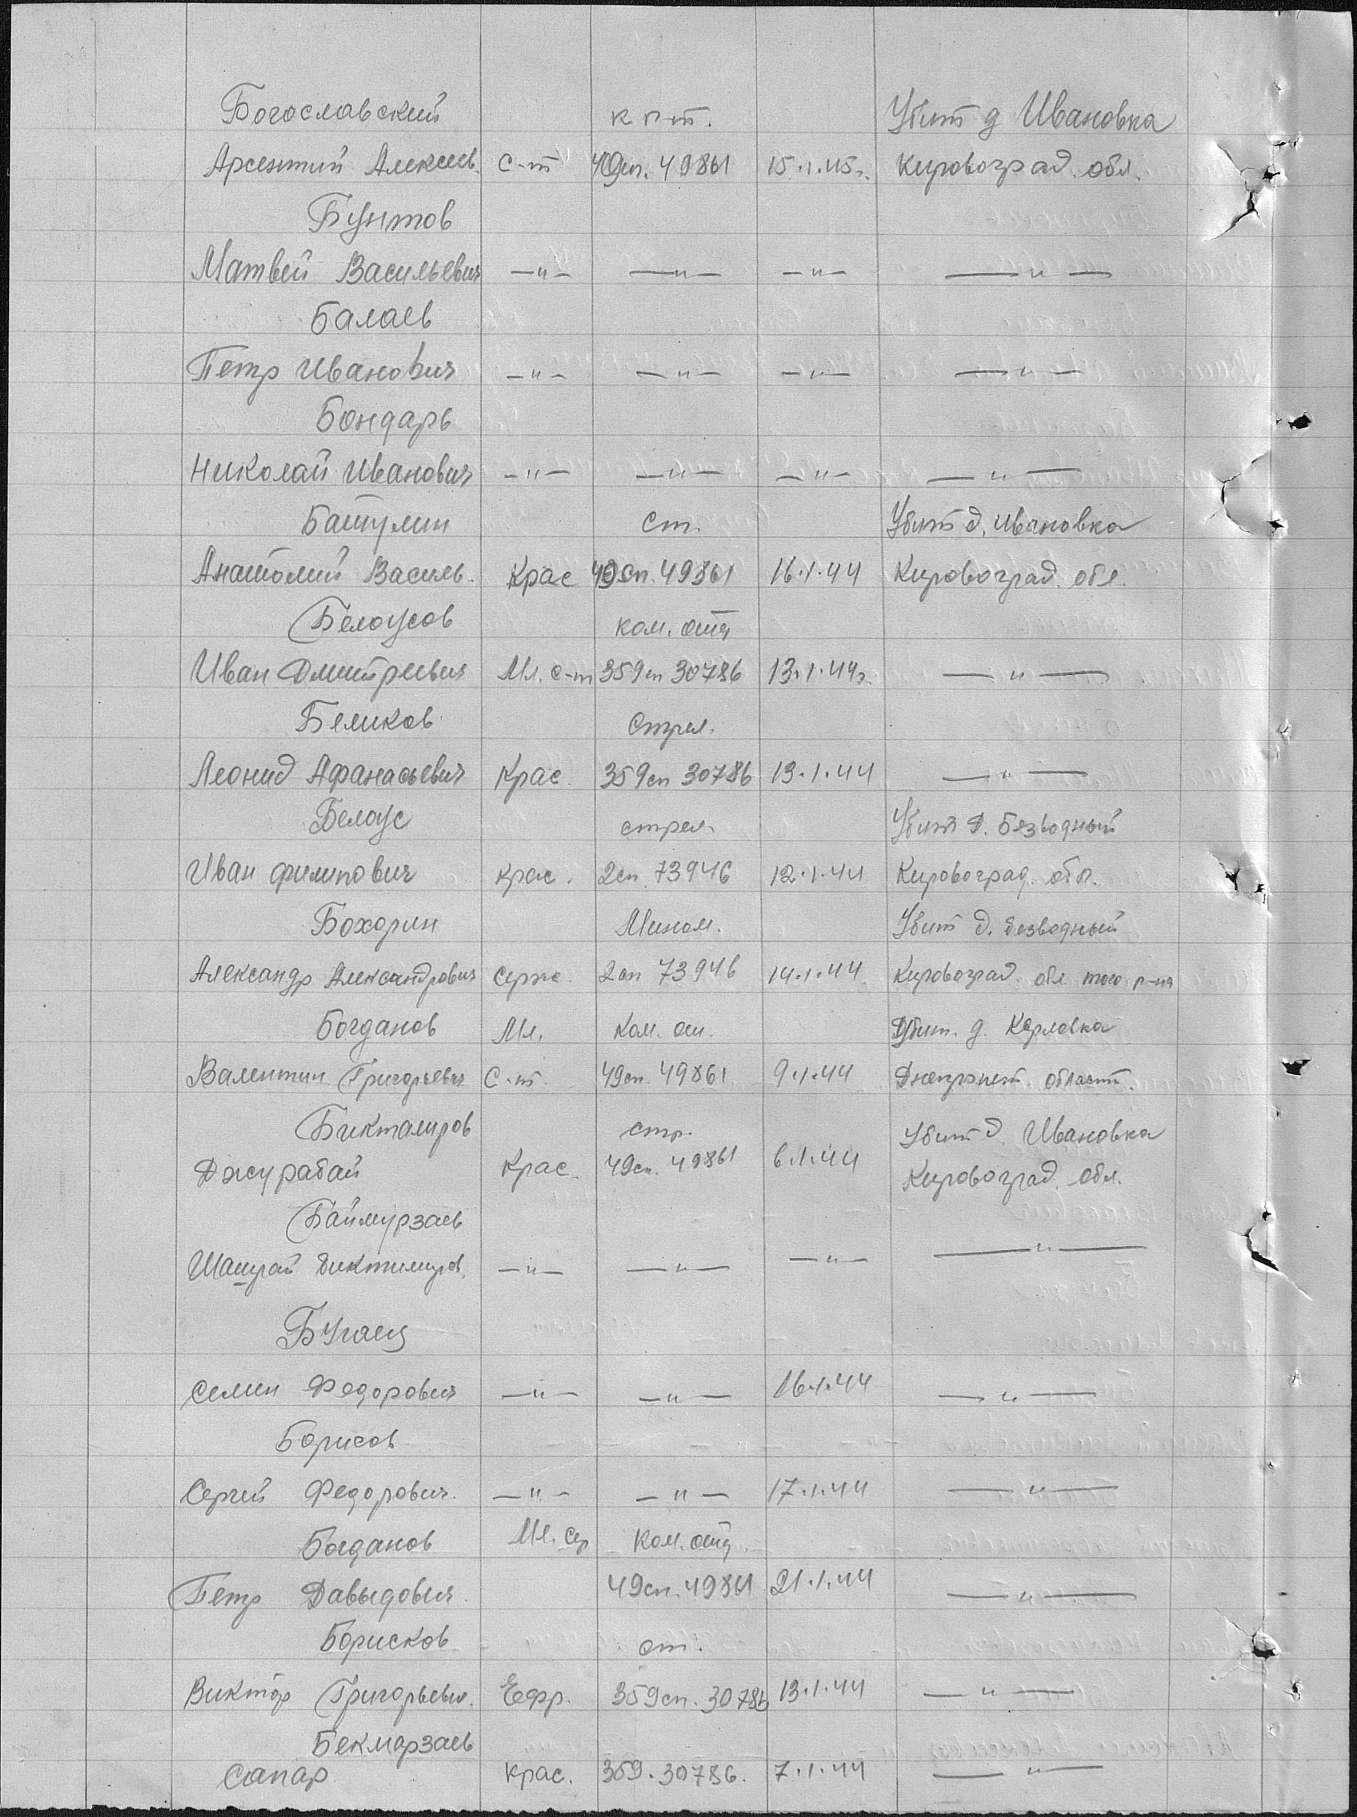 Богославский к пт. Убит д Ивановка
Арсентий Алексеев. с-т 49сп. 49861 15.1.45г. Кировоград. обл.
Бунтов
Матвей Васильевич —"— —"— —"— —"—
Балаев
Петр Иванович —"— —"— —"— —"—
Бондарь
Николай Иванович —"— —"— —"— —"—
Батулин ст. Убит д. Ивановка
Анатолий Василь. Крас 49сп. 49861 16.1.44 Кировоград. обл.
Белоусов ком. отд
Иван Дмитриевич Мл. с-т 359сп 30786 13.1.44г. —"—
Беликов стрел.
Леонид Афанасьевич Крас. 359сп 30786 13.1.44 —"—
Белоус стрел. Убит д. Безводный
Иван Филипович крас. 2сп. 73946 12.1.44 Кировоград. обл.
Бохорин Мином. Убит д. Безводный
Александр Александрович серж. 2сп 73946 14.1.44 Кировоград. обл. того р-на
Богданов Мл. Ком. от. Убит. д. Карловка
Валентин Григорьевич С-т. 49сп. 49861 9.1.44 Днепропет. област.
Бикталиров стр. Убит д. Ивановка
Джурабай Крас. 49сп. 49861 6.1.44 Кировоград. обл.
Баймурзаев
Шашрай Биктимиров. —"— —"— —"— —"—
Бугаец
Семен Федорович —"— —"— 16.1.44 —"—
Борисов
Сергей Федорович. —"— —"— 17.1.44 —"—
Богданов Мл. сер Ком. отд.
Петр Давыдович. 49сп. 49861 21.1.44 —"—
Борисков от.
Виктор Григорьевич. Ефр. 359сп. 30786 13.1.44 —"—
Бекмарзаев
Сапар крас. 359. 30786. 7.1.44 —"—